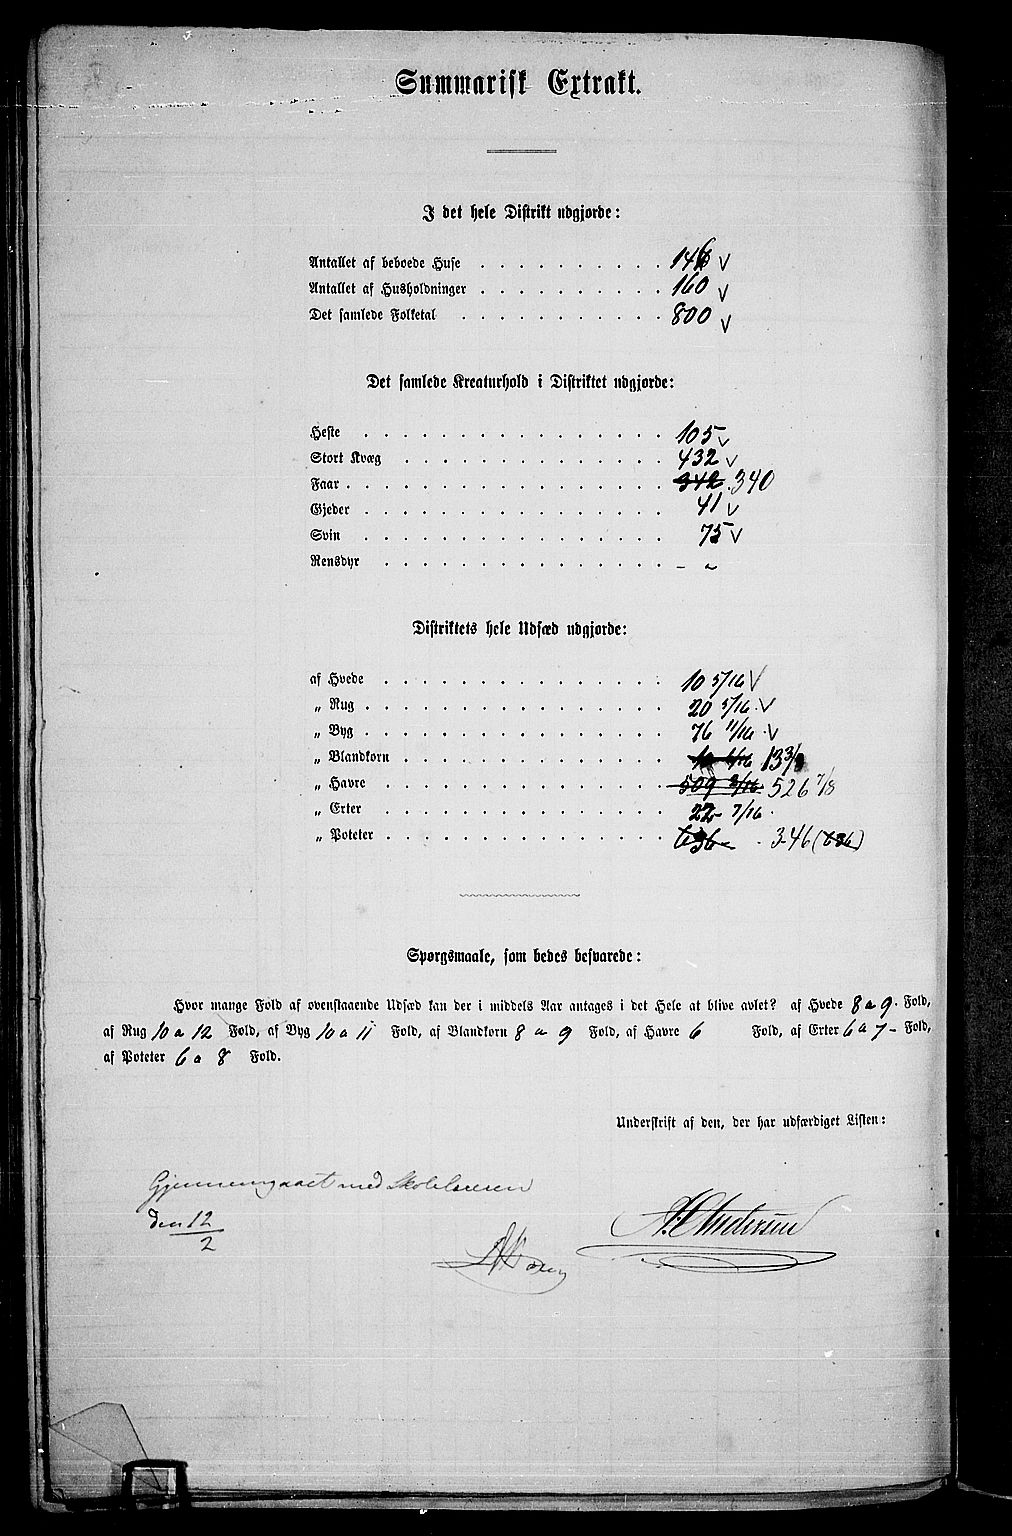 Summarisk Extrakt.
I det hele Distrikt udgjorde:
Antallet af beboede Huse . . . . . . . . . . 146 V
Antallet af Husholdninger . . . . . . . . . . 160 V
Det samlede Folketal . . . . . . . . . . . 800 V
Det samlede Kreaturhold i Distriktet udgjorde:
Heste . . . . . . . . . . . . . . . . 105 V
Stort Kvæg . . . . . . . . . . . . . . 432 V
Faar . . . . . . . . . . . . . . . . . 342 340
Gjeder . . . . . . . . . . . . . . . . 41 V
Svin . . . . . . . . . . . . . . . . 75 V
Rensdyr . . . . . . . . . . . . . . . - "
Distriktets hele Udsæd udgjorde:
af Hvede . . . . . . . . . . . . . . . 10 5/16 V
„ Rug . . . . . . . . . . . . . . . . 20 5/16 V
„ Byg . . . . . . . . . . . . . . . . 76 11/16 V
„ Blandkorn . . . . . . . . . . . . . . 13 3/8
„ Havre . . . . . . . . . . . . . . . . 509 3/16 526 7/8
„ Erter . . . . . . . . . . . . . . . 22 7/16
„ Poteter . . . . . . . . . . . . . . . 636 346 (636)
Spørgsmaale, som bedes besvarede:
Hvor mange Fold af ovenstaaende Udsæd kan der i middels Aar antages i det Hele at blive avlet? af Hvede 8 a 9 Fold,
af Rug 10 a 12 Fold, af Byg 10 a 11 Fold, af Blandkorn 8 a 9 Fold, af Havre 6 Fold, af Erter 6 a 7 Fold,
af Poteter 6 a 8 Fold.
Underskrift af den, der har udfærdiget Listen:
Gjennemgaaet med Skolelæreren
den 12/2
Andersen